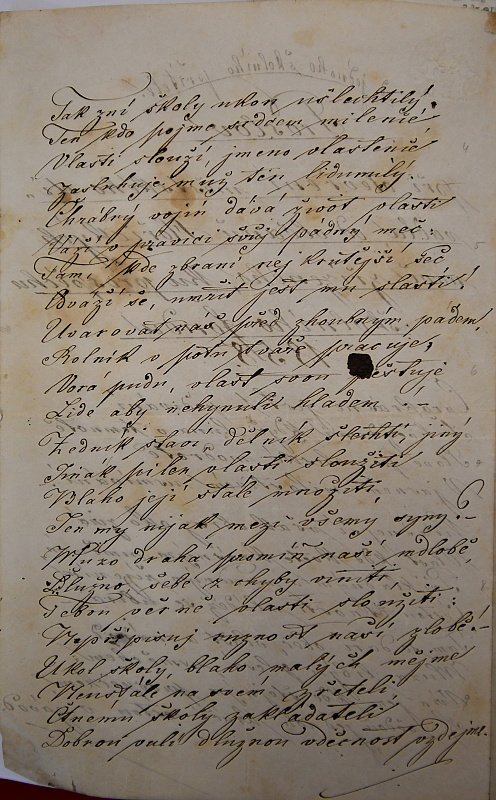 Tak zní školy úkon ušlechtilý,
Ten kdo pojme srdcem milenie
Vlasti slouží, jmeno vlastenie
Zasluhuje muž ten lidumilý.
Chrabrý vojín dává život vlasti
v pravici svůj pádný meč:
Tam, kde zbraní nejkrutější seč
Odváží se, umřít jest mu slastí!
Uvarovat nás před zhoubným pádem,
Rolník v potu tváře pracuje,
pudu, vlast svou pěstuje
Lidé aby nehynuli hladem –
Zedník staví dělník šlechtí jiný
Jinak pílen vlasti sloužiti
Blaho její stále množiti,
Jen my nijak mezi všemy syny? –
Můzo drahá promiň naší mdlobě,
Slušno sebe z chyby viniti
Tebou věrně vlasti sloužiti:
nuznost naší zlobě! –
Ukol školy blaho malých mějme
na svem zřiteli,
Ctnemu školy zakladateli,
Dobrou vuli dlužnou vděčnost vzdejme.